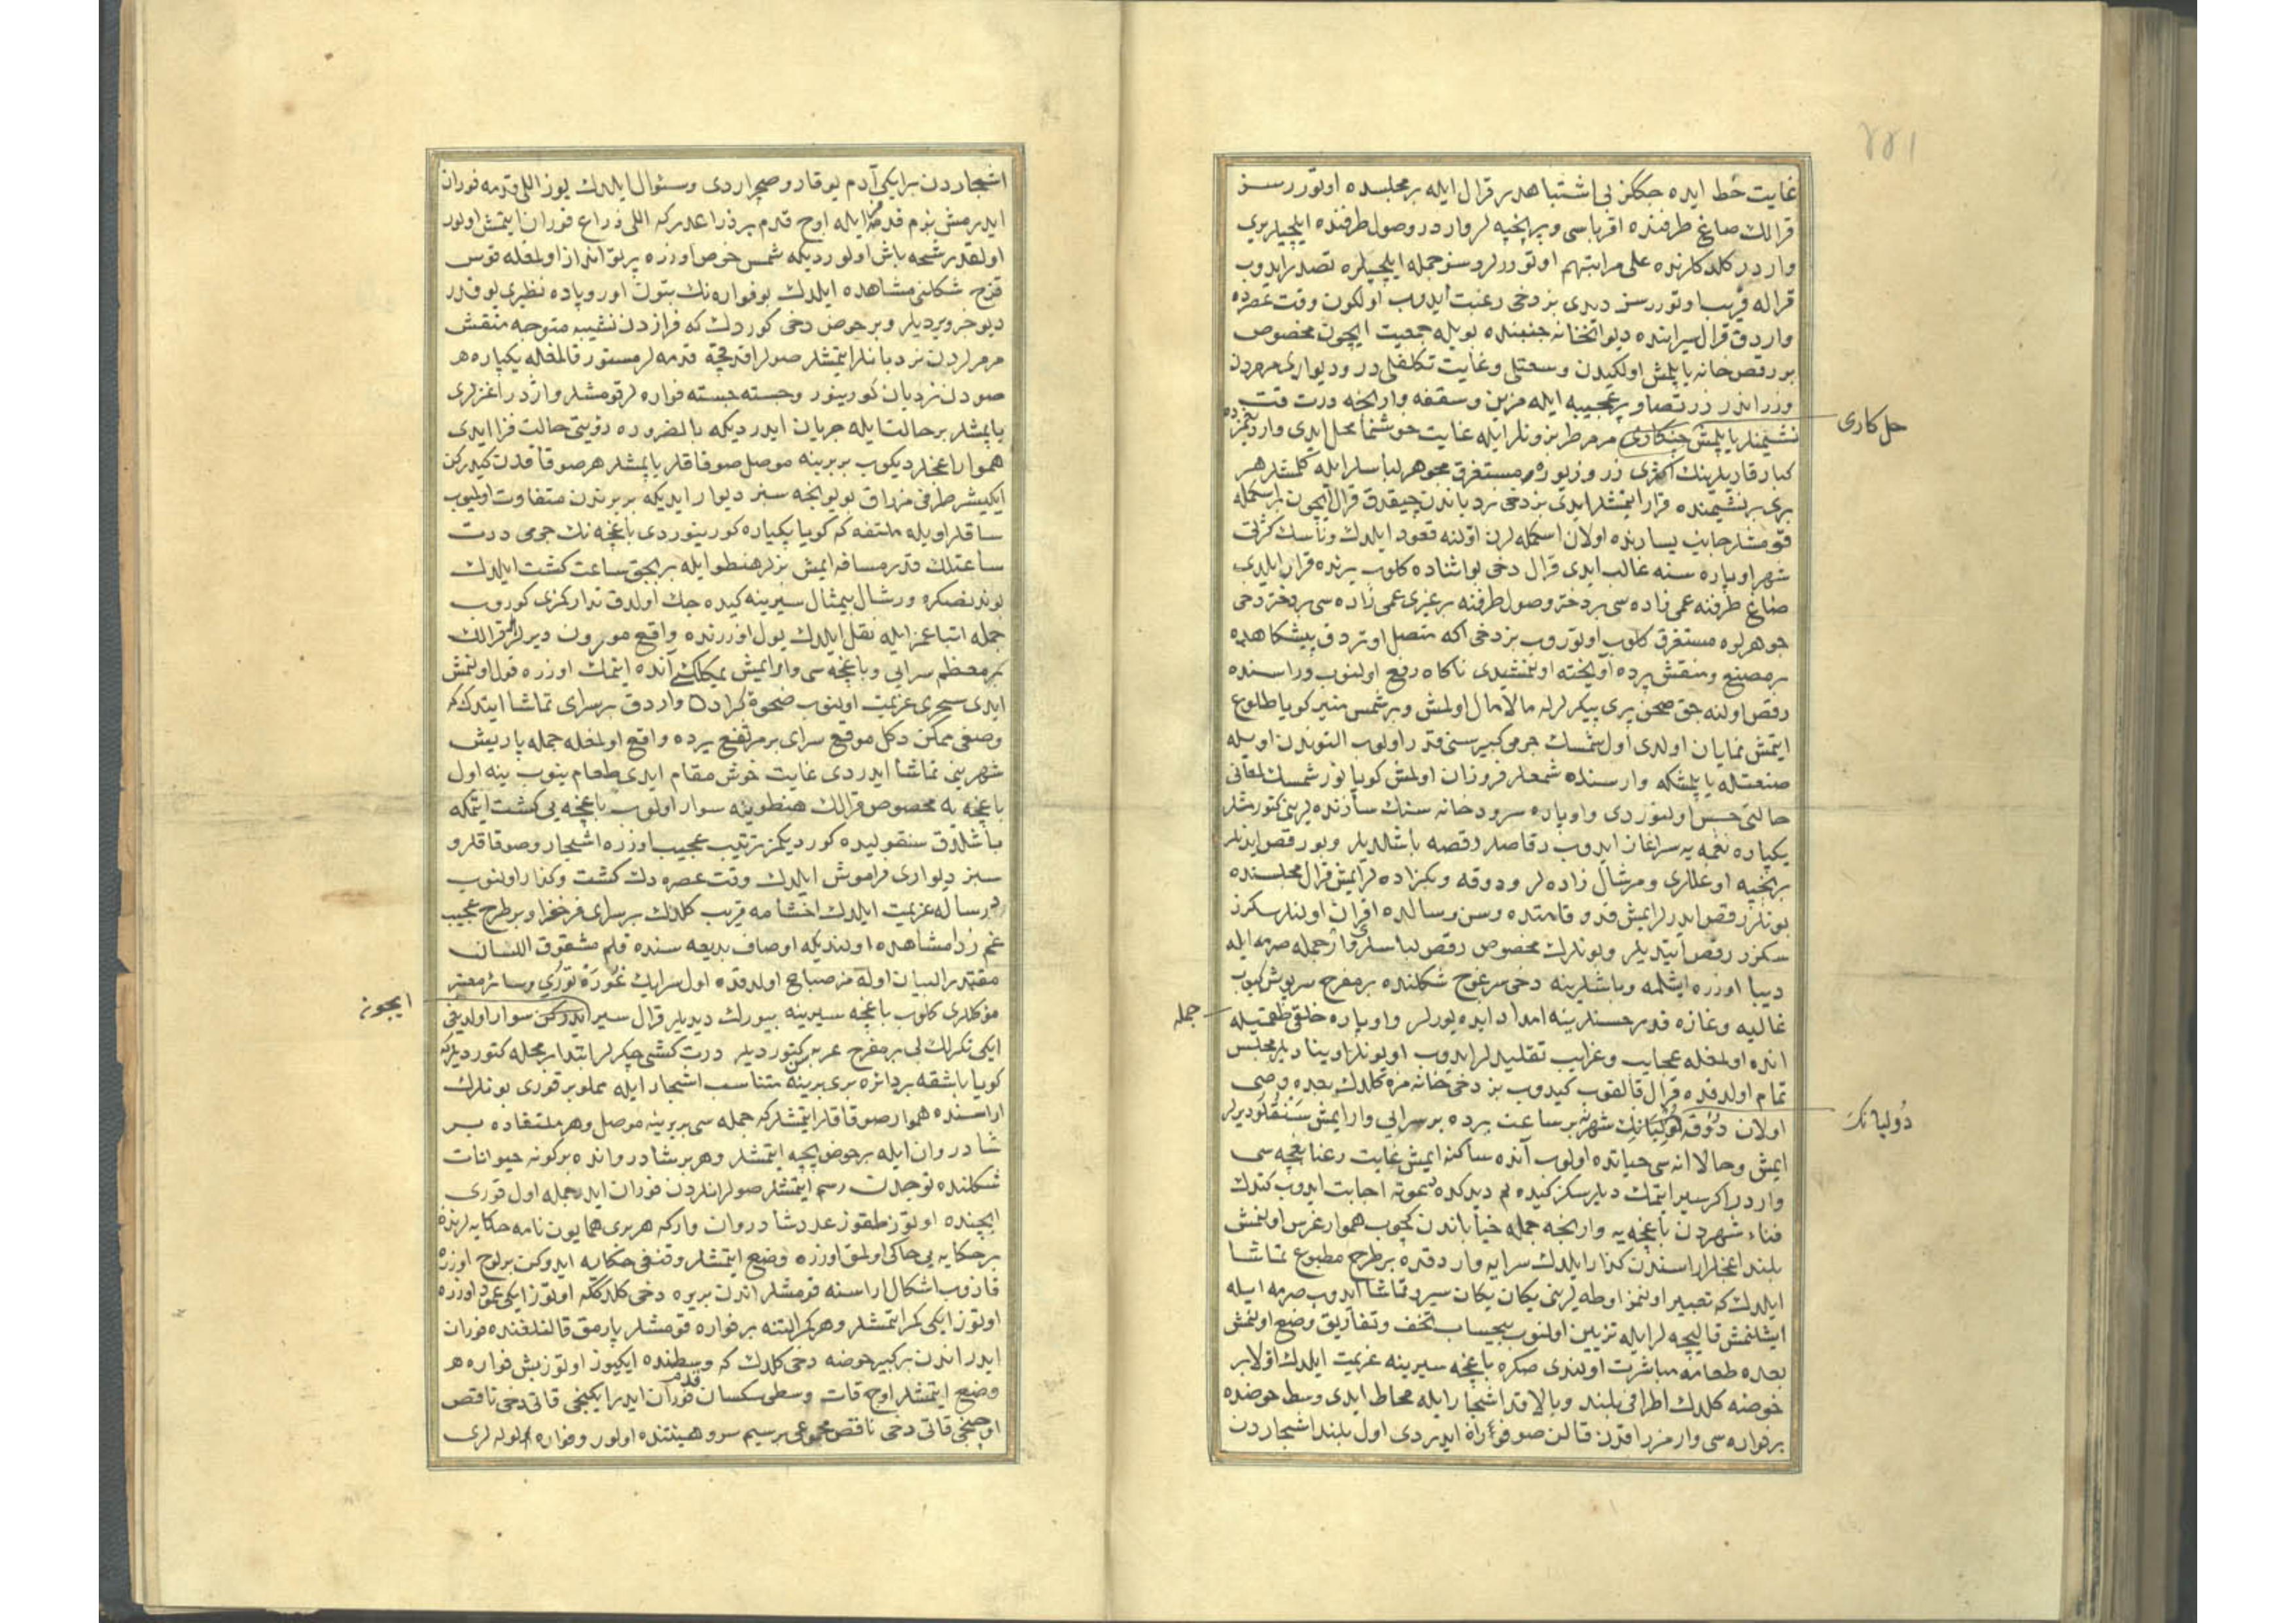 ٢٢١
غايت حظ ايده جككز بى اشتباهدر قرال ايله بر مجلسده اوتوررسز
قرالك صاغ طرفنده اقرباسى و بر قاچ لر واردر و صول طرفنده ايلچيلر يرى
واردر كلدكلرنده على مراتبهم اوتوررلر و سز جمله ايلچيلره تصدر ايدوب
قراله قريب اوتوررسز ديدى بز دخى رغبت ايدوب اولكون وقت عصرده
واردق قرال سراينده ديوانخانه جنبنده بويله جمعيت ايچون مخصوص
بر رقص خانه ياپلمش اولكيدن وسعتلى و غايت تكلفلى در و ديوارى مرمردن
وزر اندر زر تصاوير عجيبه ايله مزين و سقفه وارنجه درت قت
نشيمنلر ياپلمش مرمر طربزونلر ايله غايت خوشنما محل ايدى
حل كارى
كبار قاريلرينك اكثرى زر و زيوره مستغرق مجوهر لباسلر ايله كلمشلر هر
برى بر نشيمنده قرار ايتمشلر ايدى بز دخى نردباندن چيقدق قرال ايچون بر اسكمله
قومشلر جانب يسارنده اولان اسكمله لرن اوّلنه قعود ايلدك و ناسك كثرتى
شهر اوپاره سنه غالب ايدى قرال دخى بو اثناده كلوب يرنده قرار ايلدى
صاغ طرفنه عمى زاده سى بر دختر و صول طرفنه بر غيرى عمى زاده سى بر دختر دخى
جوهرلره مستغرق كلوب اوتوروب بز دخى اكه متصل اوتردق پيشكاهده
بر مصنع و منقش پرده آويخته اولنمشيدى ناكاه رفع اولنوب وراسنده
رقص اولنه جق صحن پرى پيكرلرله مالامال اولمش و بر شمس منير كويا طلوع
ايتمش نمايان اولدى اول شمسك جرمى كبير سنى قدر اولوب التوندن اويله
صنعتله ياپلمشكه وارسنده شمعلر فروزان اولمش كويا نور شمسك لمعانى
حالتى حس اولنوردى و اوپاره سرودخانه سنك سازنده لرينى كتورمشلر
يكپاره نغمه يه سرآغاز ايدوب رقاصلر رقصه باشلديلر و بو رقص ايدنلر
اوغللرى و مرشال زاده لر و دوقه و بكزاده لر ايمش قرال مجلسنده
بونلر رقص ايدرلر ايمش قد و قامتده و سن و سالده اقران اولنلر سكزر
سكزر رقص ايتديلر و بونلرك مخصوص رقص لباسلرى وار جمله صرمه ايله
ديبا اوزره ايشلمه و باشلرينه دخى سرغوج شكلنده بر مفرح سرپوش كيوب
غاليه و غازه قدر حسنلرينه امداد ايده يورلر و اوپاره خلقى
جمله
انده اولمغله عجايب و غرايب تقليدلر ايدوب اويونلر اوينا ديلر مجلس
تمام اولدقده قرال قالقوب كيدوب بز دخى خانه مزه كلدك بعده وصى
اولان دوقه شهره بر ساعت يرده بر سرايى وار ايمش سنقلو ديرلر
دُوليانك
ايمش و حالا انه سى حياتده اولوب آنده ساكنه ايمش غايت رعنا باغچه سى
واردر اكر سير ايتمك ديلرسكز كيده لم ديدكده اجابت ايدوب كتدك
فناء شهردن باغچه يه وارنجه جمله خياباندن كچوب هموار غرس اولنمش
بلند اغاجلر اراسندن كذار ايلدك سرايه واردقده بر طرح مطبوع تماشا
ايلدك كه تعبير اولنمز اوطه لرينى يكان يكان سير و تماشا ايدوب صرمه ايله
ايشلنمش قاليچه لر ايله تزيين اولنوب بيحساب تحف و تفاريق وضع اولنمش
بعده طعامه مباشرت اولندى صكره باغچه سيرينه عزيمت ايلدك اوّلا بر
حوضه كلدك اطرافى بلند و بالا قد اشجار ايله محاط ايدى وسط حوضده
بر فواره سى وار مزراقدن قالن صو فواره ايدردى اول بلند اشجاردن
اشجاردن بر ايكى آدم يوقارو صچراردى و سئوال ايلدك يوز اللى قدمه فوران
ايدرمش بزم قدممز ايله اوچ قدم بر ذراعدر كه اللى ذراع فوران ايتمش اولور
اولقدر رشحه پاش اولور ديكه شمس حوض اوزره پرتو انداز اولمغله قوس
قزح شكلنى مشاهده ايلدك بو فواره نك بتون اوروپاده نظيرى يوقدر
ديو خبر ويرديلر و بر حوض دخى كوردك كه فرازدن نشيبه متوجه منقش
مرمرلردن نردبانلر ايتمشلر صولر اقدقچه قدمه لر مستور قالمغله يكپاره هر
صودن نردبان كورينور و جسته جسته فواره لر قومشلر و اژدر اغزلرى
ياپمشلر بر حالت ايله جريان ايدر ديكه بالضروره رؤيتى حالت فزا ايدى
هموار اغاجلر ديكوب بر برينه موصل صوقاقلر ياپمشلر هر صوقاقدن كيدركن
ايكيشر طرفى مزراق بويو انجه سبز ديوار ايديكه بر برندن متفاوت اوليوب
ساقلر اويله ملتفه كه كويا يكپاره كورينوردى باغچه نك جرمى درت
ساعتلك قدر مسافه ايمش بزلر هنطو ايله بر بچق ساعت كشت ايلدك
بوندنصكره ورشال بيمثال سيرينه كيده جك اولدق تداركمزى كوروب
جمله اتباعمز ايله نقل ايلدك يول اوزرنده واقع مورون ديرلر قرالك
بر معظم سرايى و باغچه سى وار ايمش آنده ايتمك اوزره قول اولنمش
ايدى سحرى عزيمت اولنوب ضحوۀ كبراده واردق بر سراى تماشا ايتدك كه
وصفى ممكن دكل موقع سراى بر مرتفع يرده واقع اولمغله جمله پاريس
شهرينى تماشا ايدردى غايت خوش مقام ايدى طعام ينوب ينه اول
باغچه يه مخصوص قرالك هنطوينه سوار اولوب باغچه يى كشت ايتمكه
باشلدق سنقوليده كورديكمز ترتيب عجيب اوزره اشجار و صوقاقلر و
سبز ديوارى فراموش ايلدك وقت عصره دك كشت و كذار اولنوب
ورساله عزيمت ايلدك اخشامه قريب كلدك بر سراى فرحفزا و بر طرح عجيب
غم زدا مشاهده اولنديكه اوصاف بديعه سنده قلم مشقوق اللسان
مقتدر البيان اوله مز صباح اولدقده اول سرايك و سائر معتبر
مؤكللرى كلوب باغچه سيرينه بيورك ديديلر قرال سير ايدركن سوار اولديغى
ايچون
ايكى تكرلكلى بر مفرح عربه كتورديلر درت كشى چكرلر ابتدا بر محله كتورديلر كه
كويا باشقه بر دائره برى برينه متناسب اشجار ايله مملو بر قورى بونلرك
اراسنده هموار صوقاقلر ايتمشلر كه جمله سى بربرينه موصل و هر ملتقاده بر
شادروان ايله بر حوضچه ايتمشلر و هر بر شادروانده بر كونه حيوانات
شكلنده توجدن رسم ايتمشلر صولر انلردن فوران ايدر جمله اول قورى
ايچنده اوتوز طقوز عدد شادروان وار كه هر برى همايون نامه حكايه لرنده
بر حكايه يى حاكى اولمق اوزره وضع ايتمشلر و قنغى حكايه ايدوكن بر لوح اوزره
قازوب اشكال اراسنه قومشلر اندن بر يره دخى كلدك كه اوتوز ايكى عمود اوزره
اوتوز ايكى كمر ايتمشلر و هر كمر التنه بر فواره قومشلر پارمق قالنلغنده فوران
ايدر اندن بر كبير حوضه دخى كلدك كه وسطنده ايكيوز اوتوز بش فواره هر
وضع ايتمشلر اوچ قات وسطى سكسان قدم فوران ايدر ايكنجى قاتى دخى ناقص
اوچنجى قاتى دخى ناقص مجموعى بر سيم سرو هيئتنده اولور و فواره لوله لرى